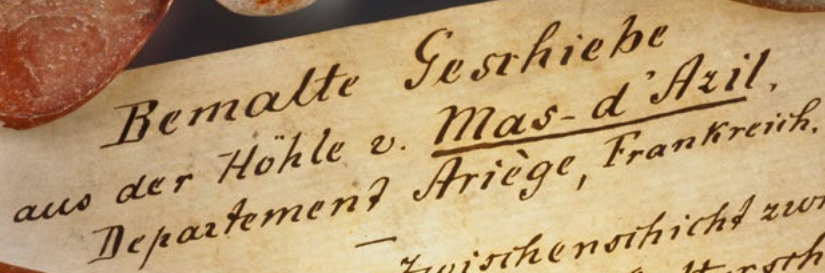 Bemalte Geschiebe
aus der Höhle v. Mas-d'Azil,
Departement Ariège, Frankreich.
— Zwischenschicht